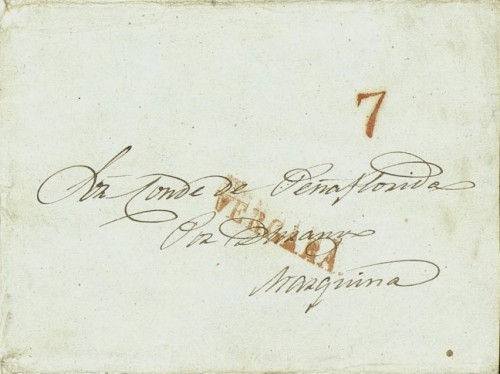 7
Sr. Conde de Peñaflorida
VERGARA
Por Durango
Marquina